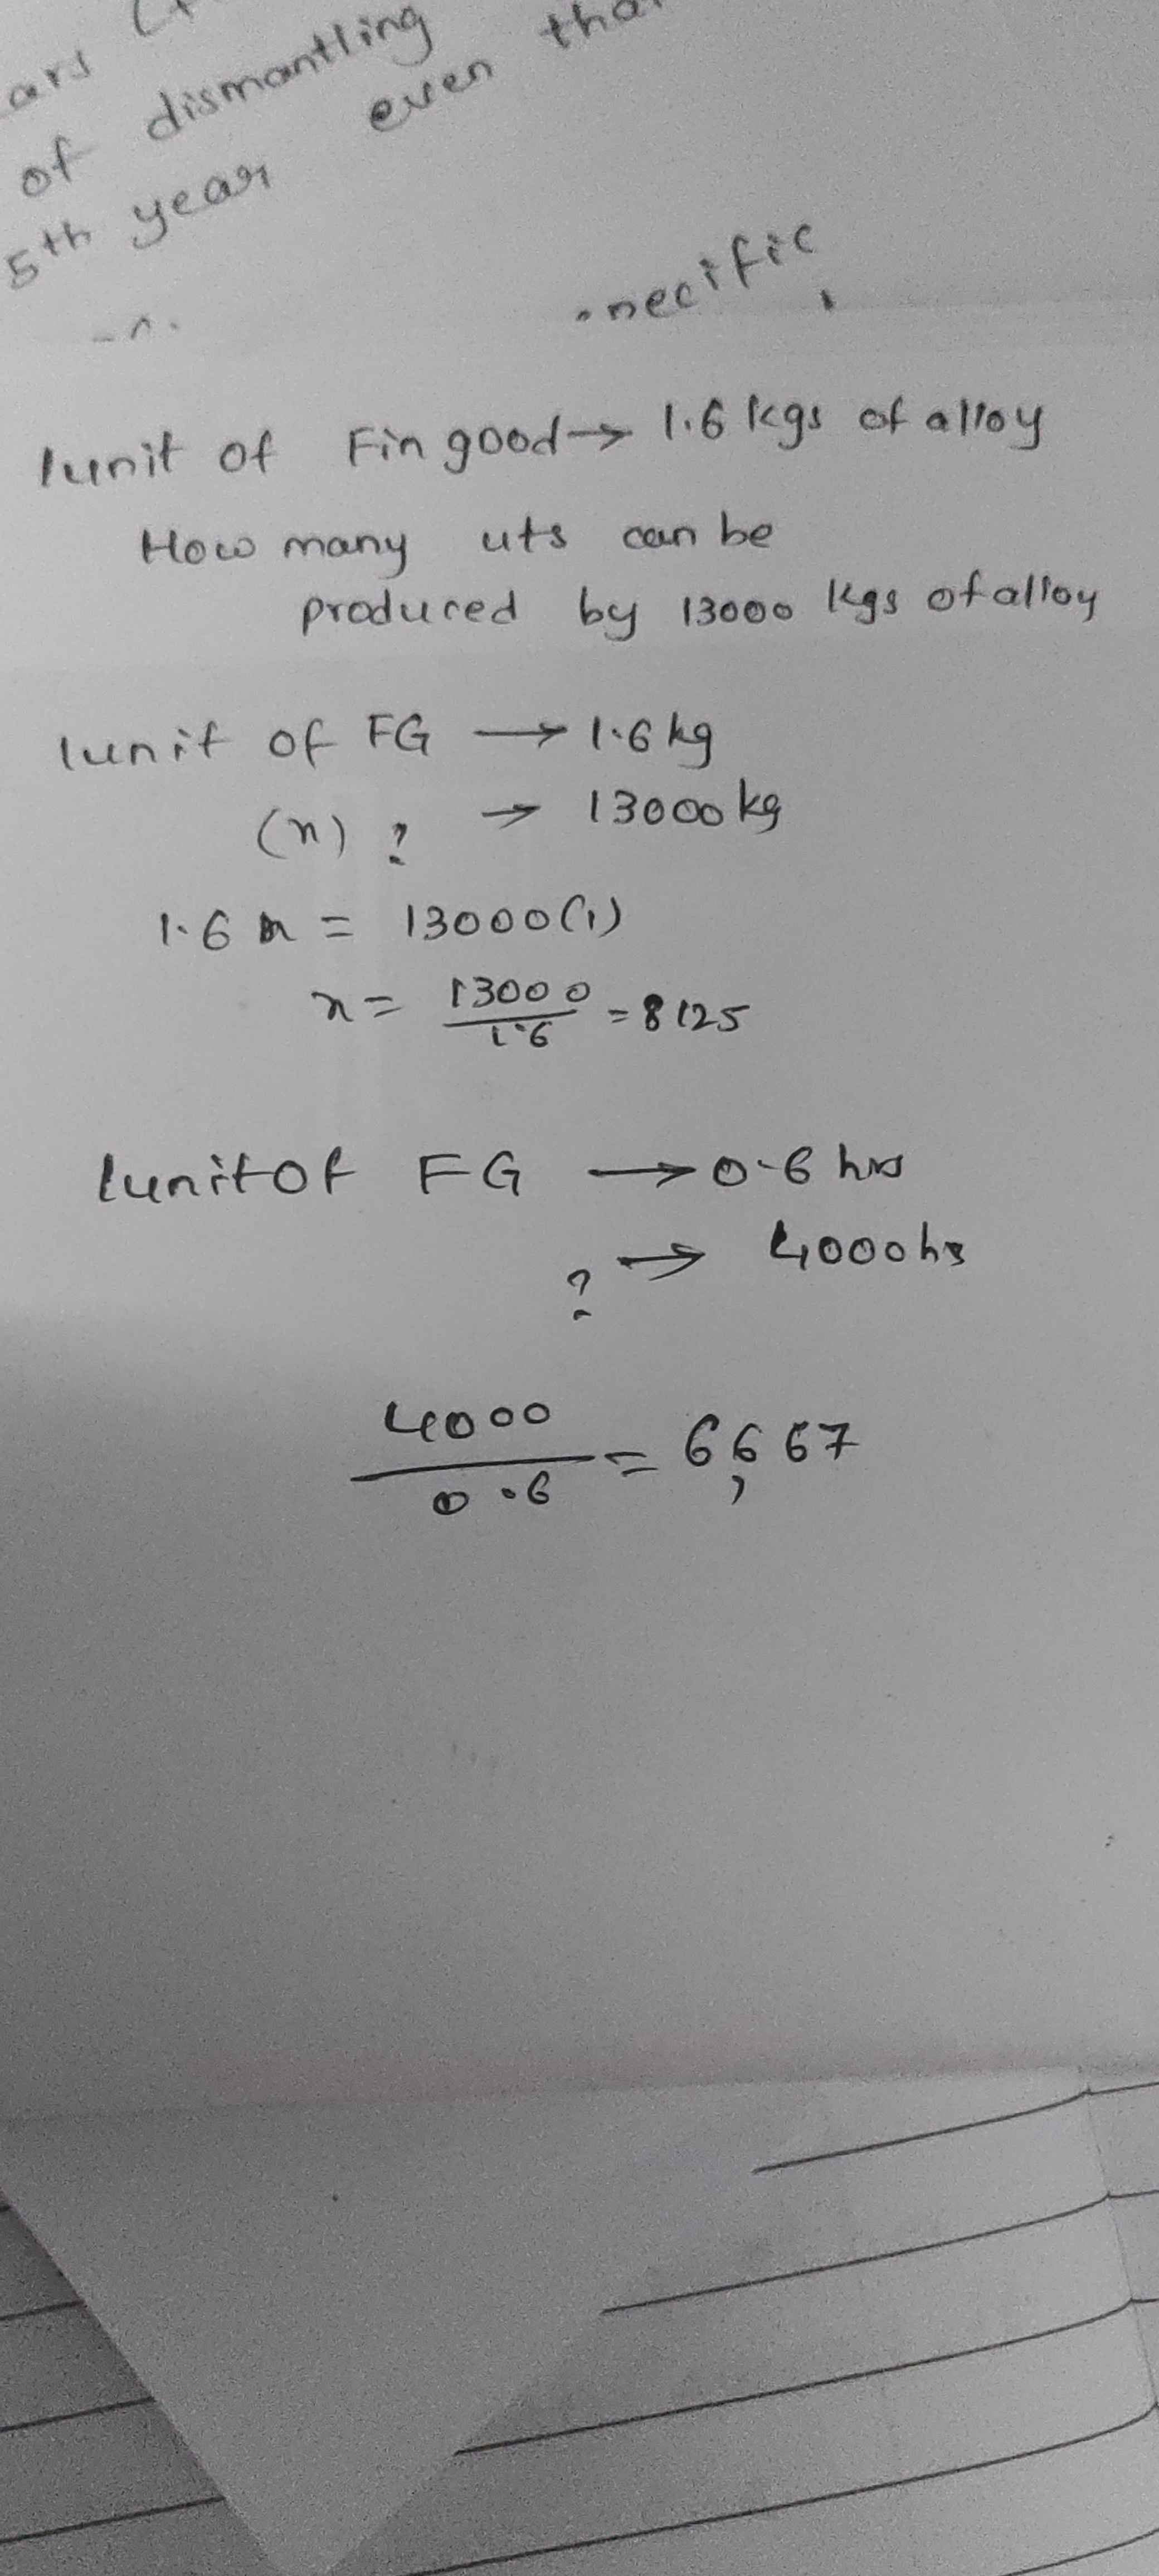 ars
of dismantling
5th year even
1unit of Fin good → 1.6 kgs of alloy
How many uts can be
produced by 13000 kgs of alloy
1unit of FG → 1.6 kg
(n) ? → 13000 kg
1.6 n = 13000(1)
n = 13000/1.6 = 8125
1unit of FG → 0.6 hrs
? → 4000 hs
4000/0.6 = 6,667